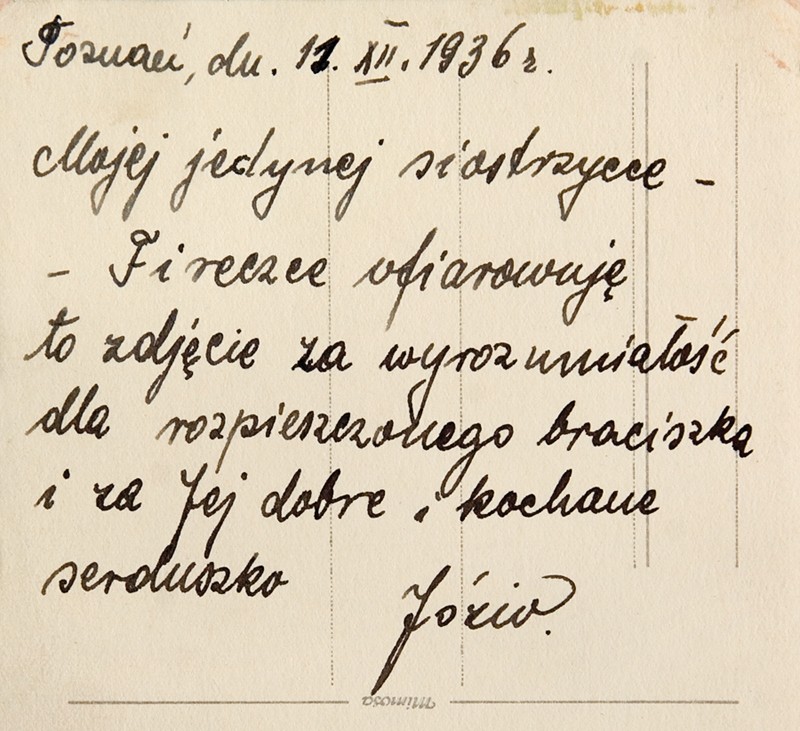 Poznań, dn. 11. XII. 1936 r.
Mojej jedynej siostrzycce -
- Fireczce ofiarowuję
to zdjęcie za wyrozumiałość
dla rozpieszczonego braciszka
i za Jej dobre i kochane
serduszko
Józio.
Mimosa